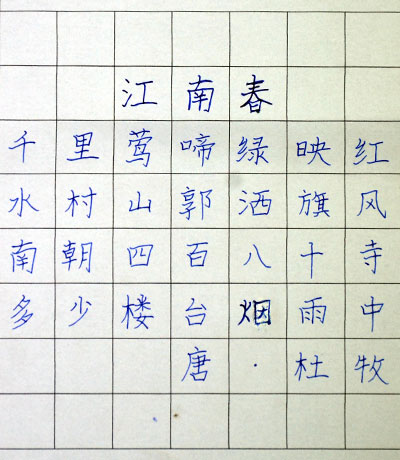 江南春
千里莺啼绿映红
水村山郭洒旗风
南朝四百八十寺
多少楼台烟雨中
唐·杜牧